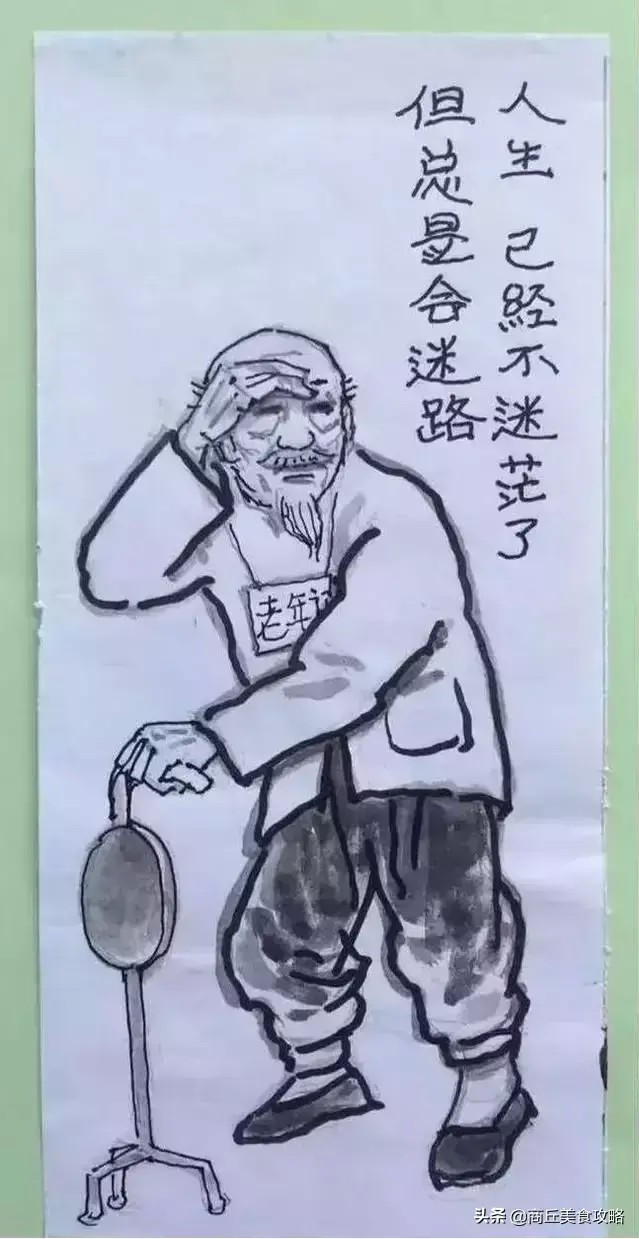 人生 已經不迷茫了
但总是会迷路
老年
头条 @商丘美食攻略